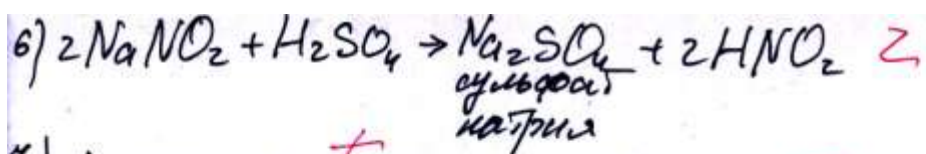 б) 2NaNO₂ + H₂SO₄ → Na₂SO₄ + 2HNO₂ 2
сульфат
натрия
+